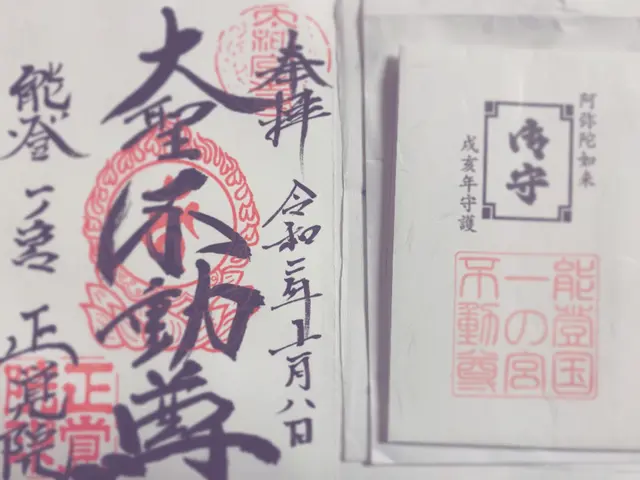 奉拝
令和二年十一月八日
大聖不動尊
能登一ノ宮 正覚院
正覚
阿弥陀如来
御守
戌亥年守護
能登国
一の宮
不動尊